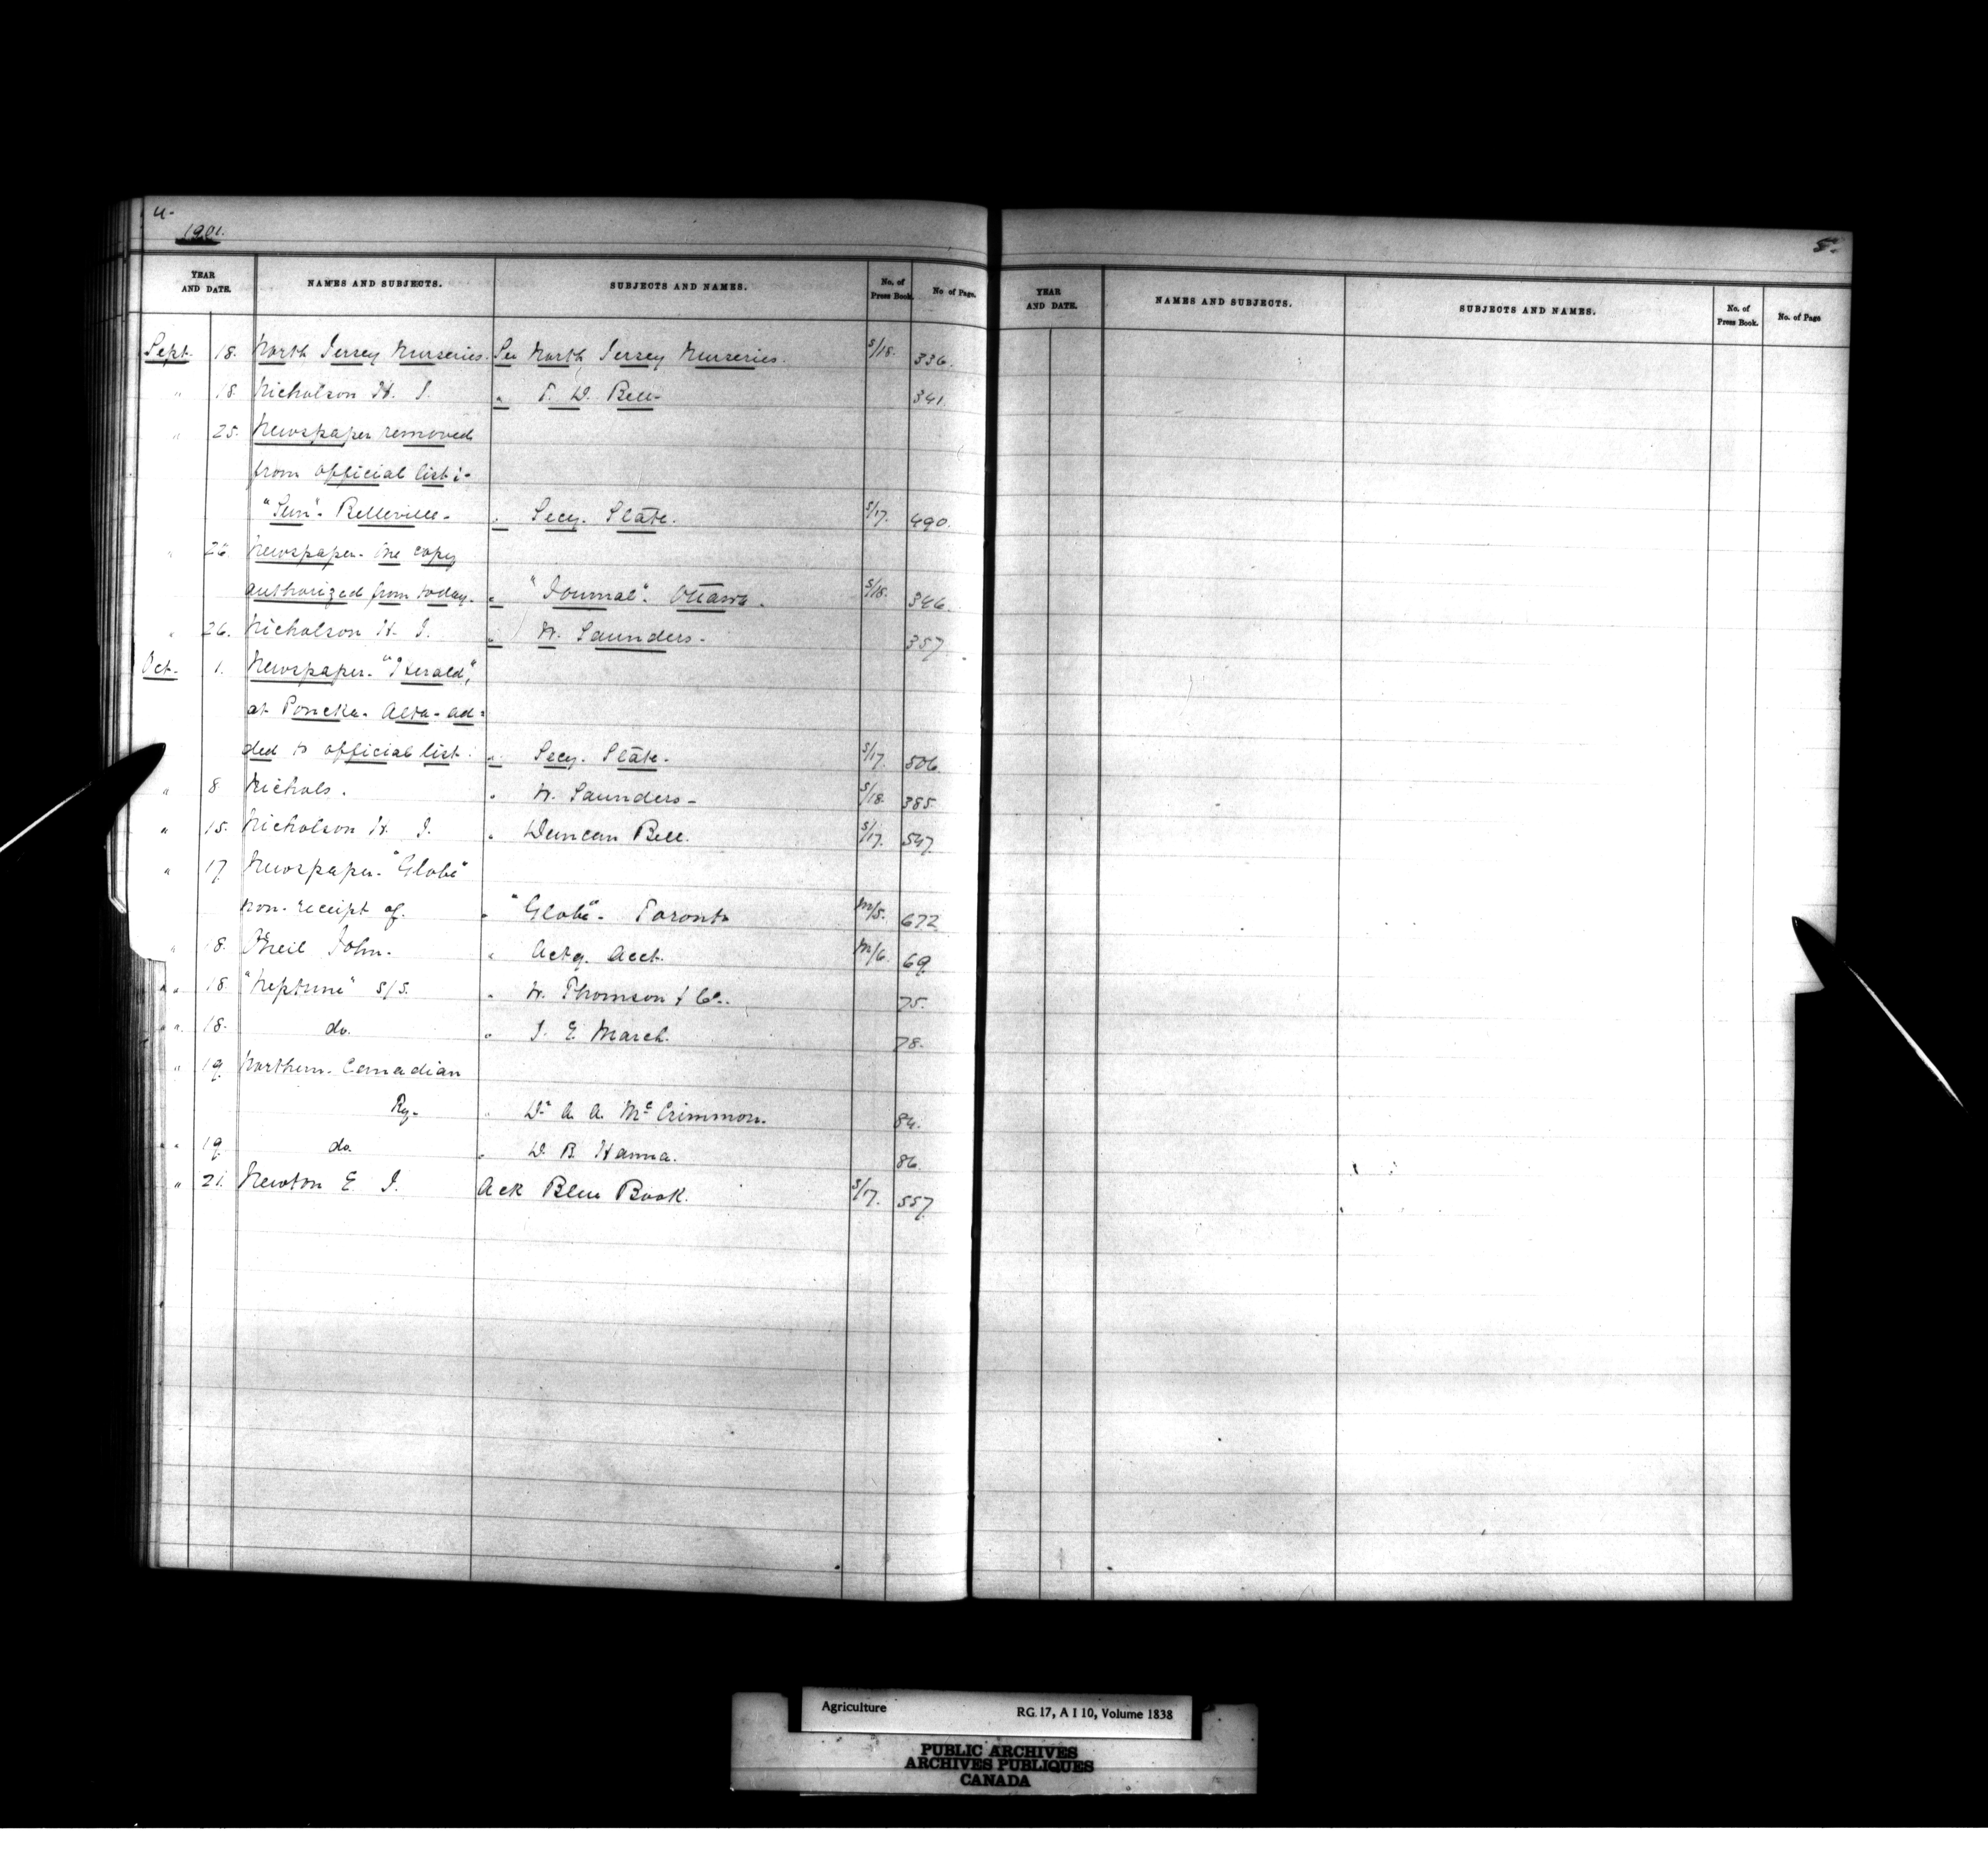 4.
1901.
YEAR AND DATE. NAMES AND SUBJECTS. SUBJECTS AND NAMES. No. of Press Book. No of Page.
Sept. 18. North Jersey Nurseries. See North Jersey Nurseries. S/18. 336.
" 18. Nicholson H. J. " T. D. Bell- 341.
" 25. Newspaper removed
from official list:-
"Sun"- Belleville- " Secy. State. S/17. 490.
" 26. Newspaper- One copy
authorized from today. " "Journal". Ottawa. S/18. 346.
" 26. Nicholson H. J. " W. Saunders- 357.
Oct- 1. Newspaper- "Herald",
at Ponoka- Alta- ad=
ded to official list. " Secy. State- S/17. 506.
" 8 Nichols. " W. Saunders- S/18. 385.
" 15. Nicholson H. J. " Duncan Bell. S/17. 547.
" 17. Newspaper- "Globe"
non-receipt of. " "Globe"- Toronto M/5. 672
" 18. O'Neil John. " Actg. Acct. M/6. 69.
" 18. "Neptune" S/S. " W. Thomson & Co. 75.
" 18. do. " J. E. March. 78.
" 19. Northern- Canadian
Ry- " Dr A. A. McCrimmon. 84.
" 19. do. " D. B. Hanna. 86.
" 21. Newton E. J. Ack Blue Book. S/17. 557.
5.
YEAR AND DATE. NAMES AND SUBJECTS. SUBJECTS AND NAMES. No. of Press Book. No. of Page
Agriculture RG. 17, A I 10, Volume 1838
PUBLIC ARCHIVES
ARCHIVES PUBLIQUES
CANADA